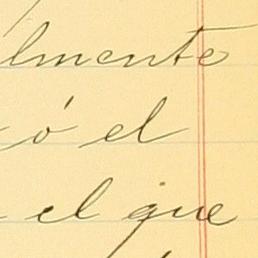 lmente
ó el
el que